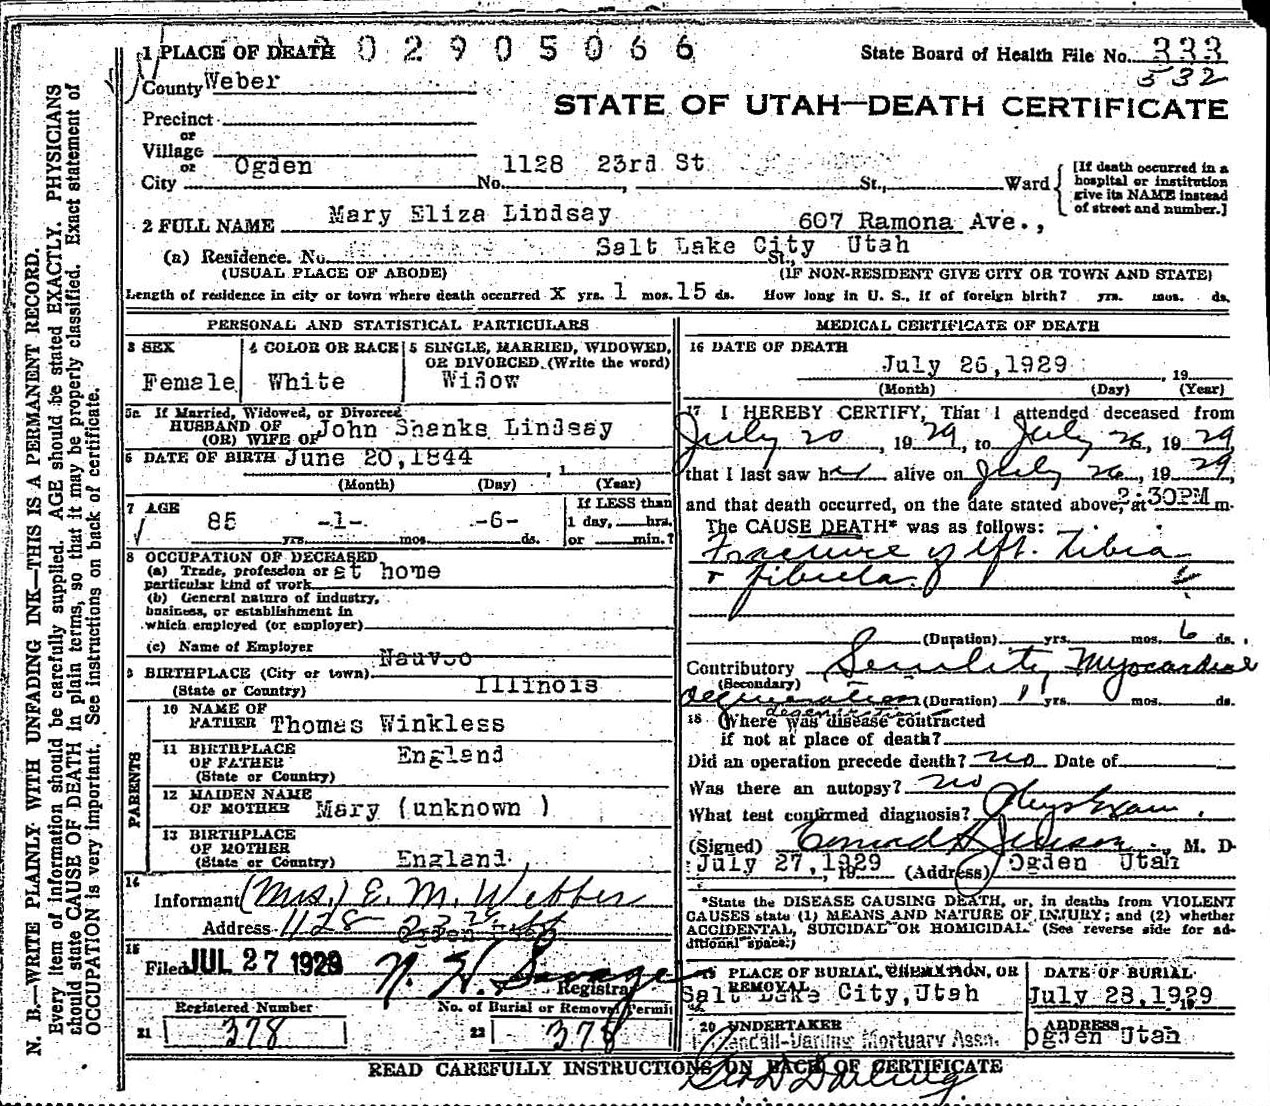 1 PLACE OF DEATH 0 2 9 0 5 0 6 6 State Board of Health File No. 333
532
County Weber
STATE OF UTAH—DEATH CERTIFICATE
Precinct
or
Village
or
City Ogden No. 1128 23rd St St., Ward
[If death occurred in a
hospital or institution
give its NAME instead
of street and number.]
2 FULL NAME Mary Eliza Lindsay 607 Ramona Ave.,
(a) Residence. No. Salt Lake City Utah St.,
(USUAL PLACE OF ABODE) (IF NON-RESIDENT GIVE CITY OR TOWN AND STATE)
Length of residence in city or town where death occurred X yrs. 1 mos. 15 ds. How long in U. S., if of foreign birth? yrs. mos. ds.
PERSONAL AND STATISTICAL PARTICULARS
3 SEX
Female
4 COLOR OR RACE
White
5 SINGLE, MARRIED, WIDOWED,
OR DIVORCED. (Write the word)
Widow
5a If Married, Widowed, or Divorced
HUSBAND OF
(OR) WIFE OF John Shanks Lindsay
6 DATE OF BIRTH June 20, 1844 , 1
(Month) (Day) (Year)
7 AGE
85 yrs. -1- mos. -6- ds.
If LESS than
1 day, hrs.
or min.?
8 OCCUPATION OF DECEASED
(a) Trade, profession or
particular kind of work at home
(b) General nature of industry,
business, or establishment in
which employed (or employer)
(c) Name of Employer
9 BIRTHPLACE (City or town) Nauvoo
(State or Country) Illinois
PARENTS
10 NAME OF
FATHER Thomas Winkless
11 BIRTHPLACE
OF FATHER England
(State or Country)
12 MAIDEN NAME
OF MOTHER Mary (unknown )
13 BIRTHPLACE
OF MOTHER
(State or Country) England
14
Informant (Mrs.) E. M. Webber
Address 1128 23rd
15
Filed JUL 27 1929 Registrar
Registered Number
21 378
No. of Burial or Removal Permit
22 378
MEDICAL CERTIFICATE OF DEATH
16 DATE OF DEATH
July 26, 1929 , 19
(Month) (Day) (Year)
17 I HEREBY CERTIFY, That I attended deceased from
July 20, 1929, to July 26, 1929,
that I last saw her alive on July 26, 1929,
and that death occurred, on the date stated above, at 2:30PM m.
The CAUSE DEATH* was as follows:
Fracture of lft. Tibia
+ fibula.
(Duration) yrs. mos. 6 ds.
Contributory Senility, Myocardial
(Secondary)
degeneration (Duration) yrs. mos. ds.
degeneration
18 Where was disease contracted
if not at place of death?
Did an operation precede death? no Date of
Was there an autopsy? no
What test confirmed diagnosis? Phys Exam.
(Signed) Conrad H Jenson, M. D.
July 27, 1929 , 19 (Address) Ogden Utah
*State the DISEASE CAUSING DEATH, or, in deaths from VIOLENT
CAUSES state (1) MEANS AND NATURE OF INJURY; and (2) whether
ACCIDENTAL, SUICIDAL OR HOMICIDAL. (See reverse side for ad-
ditional space.)
19 PLACE OF BURIAL, CREMATION, OR
REMOVAL
Salt Lake City, Utah
DATE OF BURIAL
July 28, 1929 19
20 UNDERTAKER
Mortuary Assn.
ADDRESS
Ogden Utah
READ CAREFULLY INSTRUCTIONS ON BACK OF CERTIFICATE
Darling
N. B.—WRITE PLAINLY WITH UNFADING INK—THIS IS A PERMANENT RECORD.
Every item of information should be carefully supplied. AGE should be stated EXACTLY. PHYSICIANS
should state CAUSE OF DEATH in plain terms, so that it may be properly classified. Exact statement of
OCCUPATION is very important. See instructions on back of certificate.